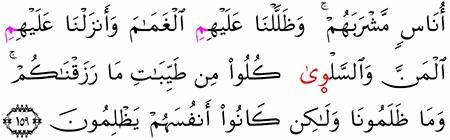 أُنَاسٖ مَّشۡرَبَهُمۡۚ وَظَلَّلۡنَا عَلَيۡهِمِ ٱلۡغَمَٰمَ وَأَنزَلۡنَا عَلَيۡهِمِ
ٱلۡمَنَّ وَٱلسَّلۡوَىٰۖ كُلُواْ مِن طَيِّبَٰتِ مَا رَزَقۡنَٰكُمۡۚ
وَمَا ظَلَمُونَا وَلَٰكِن كَانُوٓاْ أَنفُسَهُمۡ يَظۡلِمُونَ ١٥٩